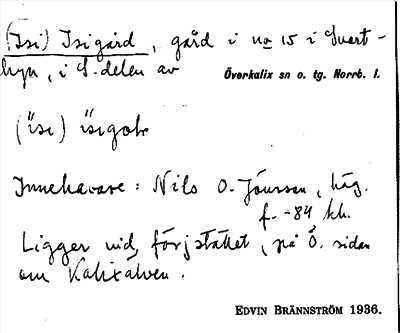 (Isi) Isigård, gård i no 15 i Svart-
byn, i S. delen av Överkalix sn o. tg. Norrb. l.
(ïsi) ïsigoḷr
Innehavare: Nils O. Jönsson, häg.
f. -84 hh.
Ligger vid färjstället, på Ö. sidan
om Kalixälven.
EDVIN BRÄNNSTRÖM 1936.